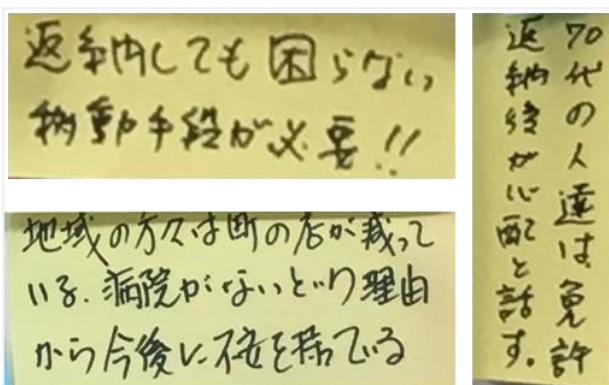 返納しても困らない
移動手段が必要!!
地域の方々は町の店が減って
いる、病院がないという理由
から今後に不安を持っている
70代の人達は、免許
返納後が心配と話す。